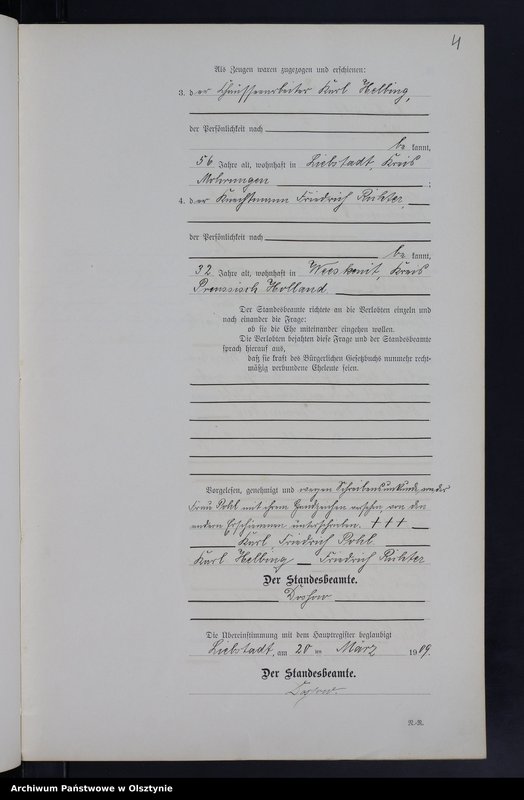 4
Als Zeugen waren zugezogen und erschienen:
3. der Chausseearbeiter Karl Helbing,
der Persönlichkeit nach
be kannt,
56 Jahre alt, wohnhaft in Liebstadt, Kreis
Mohrungen ;
4. der Friedrich Richter,
der Persönlichkeit nach
be kannt,
32 Jahre alt, wohnhaft in Weeskenit, Kreis
Preussisch Holland
Der Standesbeamte richtete an die Verlobten einzeln und
nach einander die Frage:
ob sie die Ehe miteinander eingehen wollen.
Die Verlobten bejahten diese Frage und der Standesbeamte
sprach hierauf aus,
daß sie kraft des Bürgerlichen Gesetzbuchs nunmehr recht-
mäßig verbundene Eheleute seien.
Vorgelesen, genehmigt und wegen Schreibensunkunde von der
Frau Pohl mit ihrem Handzeichen versehen, von den
andern Erschienenen unterschrieben. +++
Karl Friedrich Pohl.
Karl Helbing Friedrich Richter
Der Standesbeamte.
Die Übereinstimmung mit dem Hauptregister beglaubigt
Liebstadt, am 20 ten März 1909.
Der Standesbeamte.
N.-R.
Archiwum Państwowe w Olsztynie